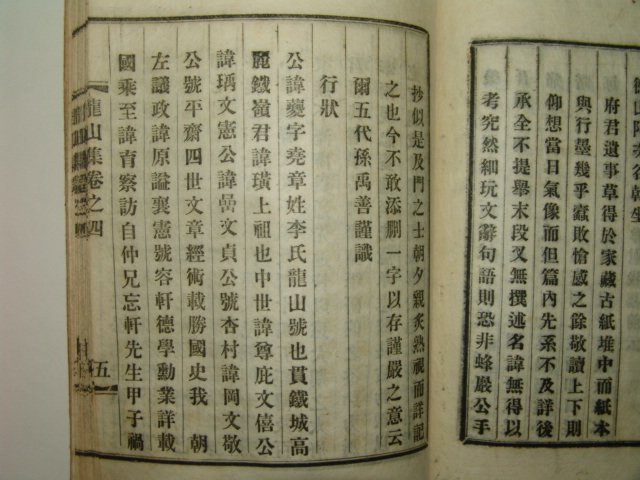 府君遺事草得於家藏古紙堆中而紙本
與行墨幾乎蠹敗愴感之餘敬讀上下則
仰想當日氣像而但篇內先系不及詳後
承全不提舉末段又無撰述名諱無得以
考究然細玩文辭句語則恐非蜂巖公手
抄似是及門之士朝夕親炙熟視而詳記
之也今不敢添刪一字以存謹嚴之意云
爾五代孫禹善謹識
行狀
公諱夔字堯章姓李氏龍山號也貫鐵城高
麗鐵嶺君諱璜上祖也中世諱尊庇文僖公
諱瑀文憲公諱嵒文貞公號杏村諱岡文敬
公號平齋四世文章經術載勝國史我 朝
左議政諱原謚襄憲號容軒德學勳業詳載
國乘至諱育察訪自仲兄忘軒先生甲子禍
龍山集卷之四
五